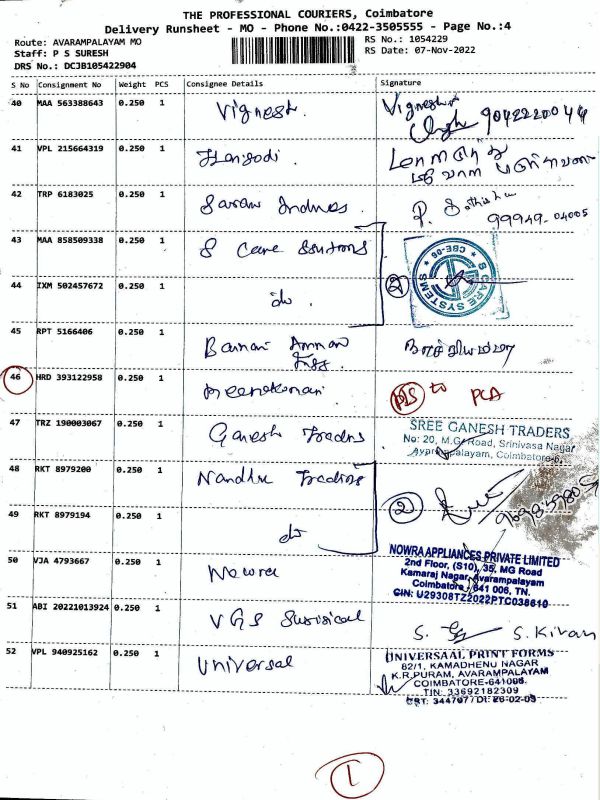 THE PROFESSIONAL COURIERS, Coimbatore
Delivery Runsheet - MO - Phone No.:0422-3505555 - Page No.:4
Route: AVARAMPALAYAM MO
RS No.: 1054229
Staff: P S SURESH
RS Date: 07-Nov-2022
DRS No.: DCJB105422904
S No Consignment No Weight PCS Consignee Details Signature
40 MAA 563388643 0.250 1 Vignesh. Vignesh
9042220044
41 VPL 215664319 0.250 1
42 TRP 6183025 0.250 1 P. Sathish
99949-04005
43 MAA 858509338 0.250 1 S Care
S CARE SYSTEMS
CBE-06
44 IXM 502457672 0.250 1 do. 2
45 RPT 5166406 0.250 1 Bannari Amman
46 HRD 393122958 0.250 1 Meenakumari to PCA
47 TRZ 190003067 0.250 1 Ganesh Traders
SREE GANESH TRADERS
No: 20, M.G. Road, Srinivasa Nagar
Avarampalayam, Coimbatore-6.
48 RKT 8979200 0.250 1 Nandhu Traders
2
49 RKT 8979194 0.250 1 do
50 VJA 4793667 0.250 1 Nowra
NOWRA APPLIANCES PRIVATE LIMITED
2nd Floor, (S10), 35, MG Road
Kamaraj Nagar, Avarampalayam
Coimbatore, 641 006, TN.
CIN: U29308TZ2022PTC038610
51 ABI 20221013924 0.250 1 VGS Surgical S. Kiran
52 VPL 940925162 0.250 1 Universal
UNIVERSAAL PRINT FORMS
82/1, KAMADHENU NAGAR
K.R.PURAM, AVARAMPALAYAM
COIMBATORE-641006.
TIN: 33692182309
CST: 344707/Dt. 26-02-03
1